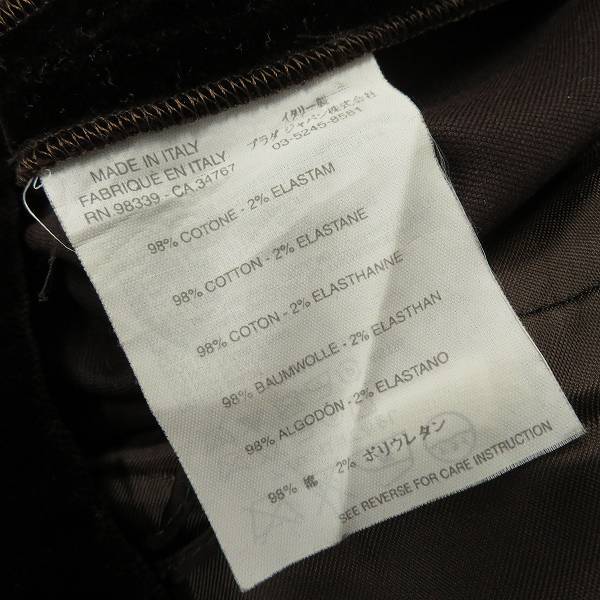 MADE IN ITALY
FABRIQUE EN ITALY
RN 98339 - CA 34767
イタリー製
プラダ ジャパン株式会社
03-5245-8581
98% COTONE - 2% ELASTAM
98% COTTON - 2% ELASTANE
98% COTON - 2% ELASTHANNE
98% BAUMWOLLE - 2% ELASTHAN
98% ALGODÓN - 2% ELASTANO
98% 綿 2% ポリウレタン
SEE REVERSE FOR CARE INSTRUCTION